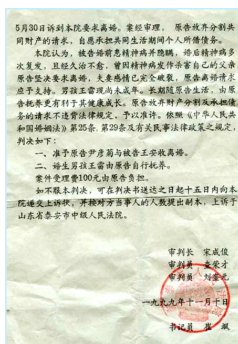 5月30日诉到本院要求离婚。案经审理，原告放弃分割共
同财产的请求，自愿承担共同生活期间个人所借债务。
本院认为，被告婚前患精神病并隐瞒，婚后精神病多
次复发，且经久治不愈，曾因精神病发作杀害自己的父亲
原告坚决要求离婚，夫妻感情已完全破裂，原告离婚请求
应予支持。男孩王雷现尚未成年。长期随原告生活，由原
告抚养更有利于其健康成长。原告放弃财产分割及承担债
务的请求不违背法律规定，予以准许。依照《中华人民共
和国婚姻法》第25条、第29条及有关民事法律政策之规定，
判决如下：
一、准予原告尹彦菊与被告王安收离婚。
二、婚生男孩王雷由原告自行抚养。
案件受理费100元由原告负担。
如不服本判决，可在判决书送达之日起十五日内向本
院递交上诉状，并按对方当事人的人数提出副本，上诉于
山东省泰安市中级人民法院。
审判长 宋成俭
审判员 秦荣才
审判员 刘
一九九九年十一月十日
书记员 崔